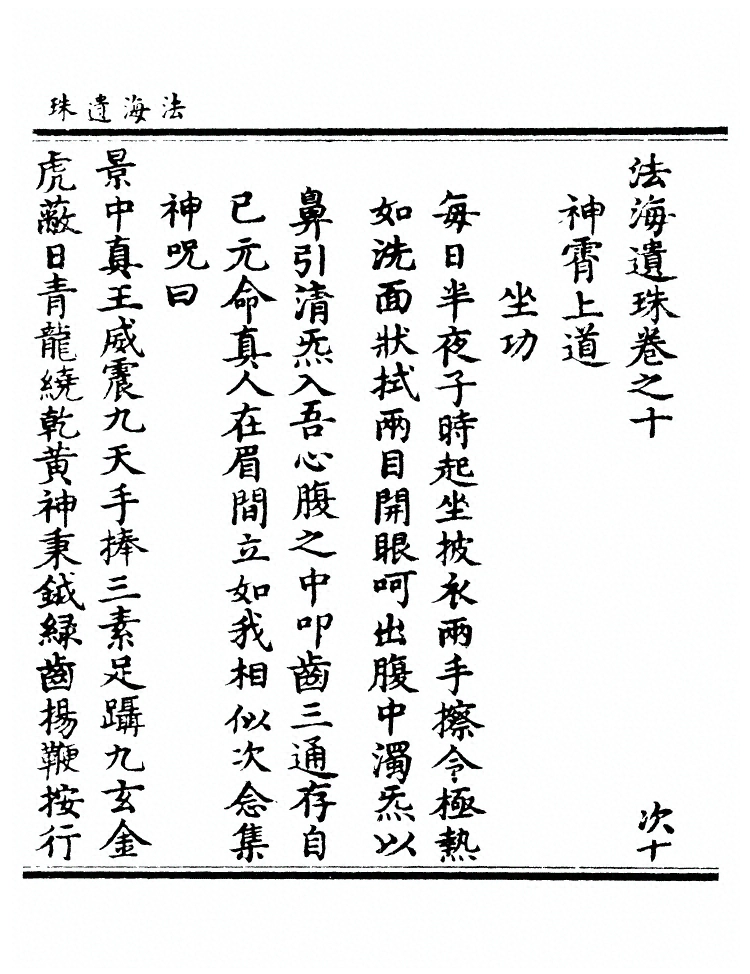 法海遺珠
法海遺珠卷之十
次十
神霄上道
坐功
每日半夜子時起坐披衣兩手擦令極熱
如洗面狀拭兩目開眼呵出腹中濁炁以
鼻引清炁入吾心腹之中叩齒三通存自
已元命真人在眉間立如我相似次念集
神呪曰
景中真王威震九天手捧三素足躡九玄金
虎蔽日青龍繞乾黃神秉鉞緑齒楊鞭按行